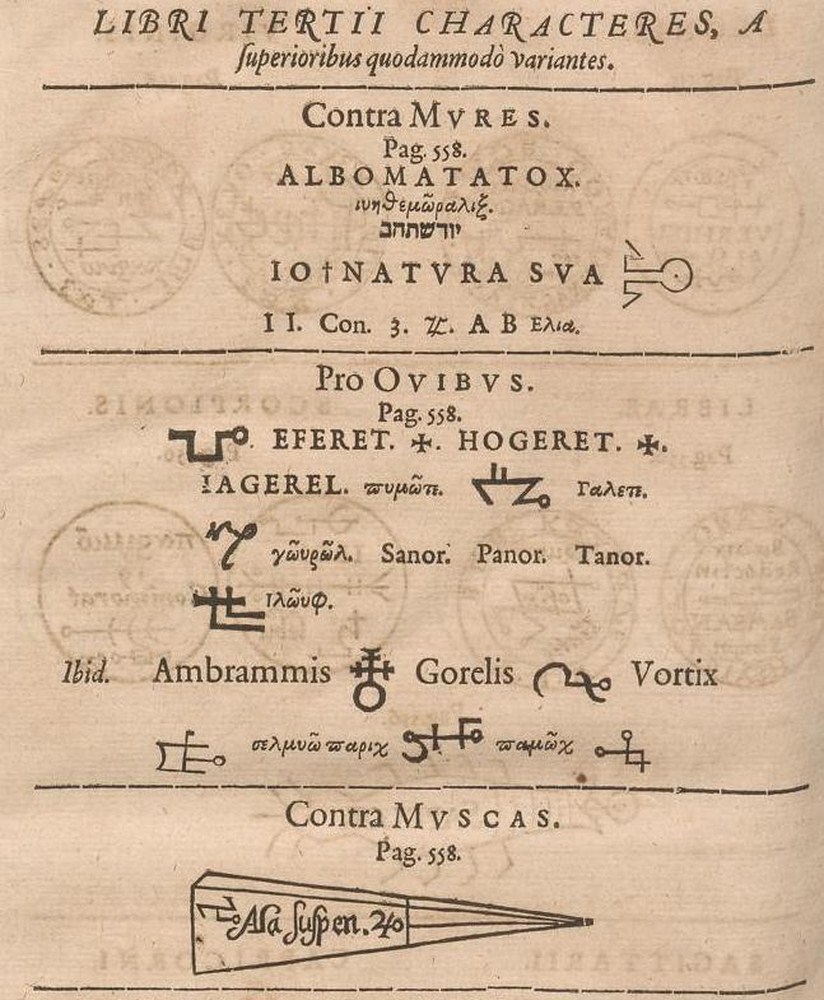 LIBRI TERTII CHARACTERES, A
superioribus quodammodò variantes.
Contra MVRES.
Pag. 558.
ALBOMATATOX.
ιυηθεμῶραλιξ.
יודשתהב
IO†NATVRA SVA
II. Con. 3. AB Ελια.
Pro OVIBVS.
Pag. 558.
EFERET. ✠. HOGERET. ✠.
IAGEREL. ϖυμῶπ. Γαλεπ.
γῶυρῶλ. Sanor. Panor. Tanor.
Ιλῶυφ.
Ibid. Ambrammis Gorelis Vortix
σελμυῶ ϖαριχ ϖαμῶχ
Contra MVSCAS.
Pag. 558.
Asa suspen.